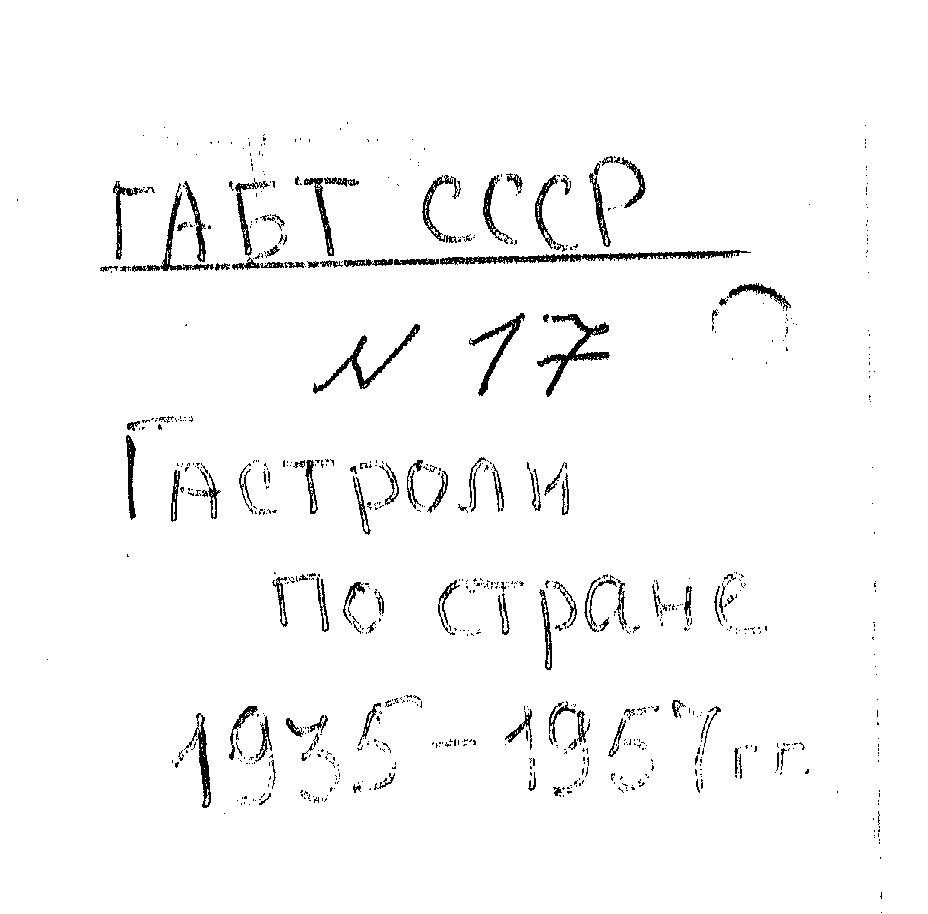 ГАБТ СССР
N 17
Гастроли
по стране
1935-1957гг.